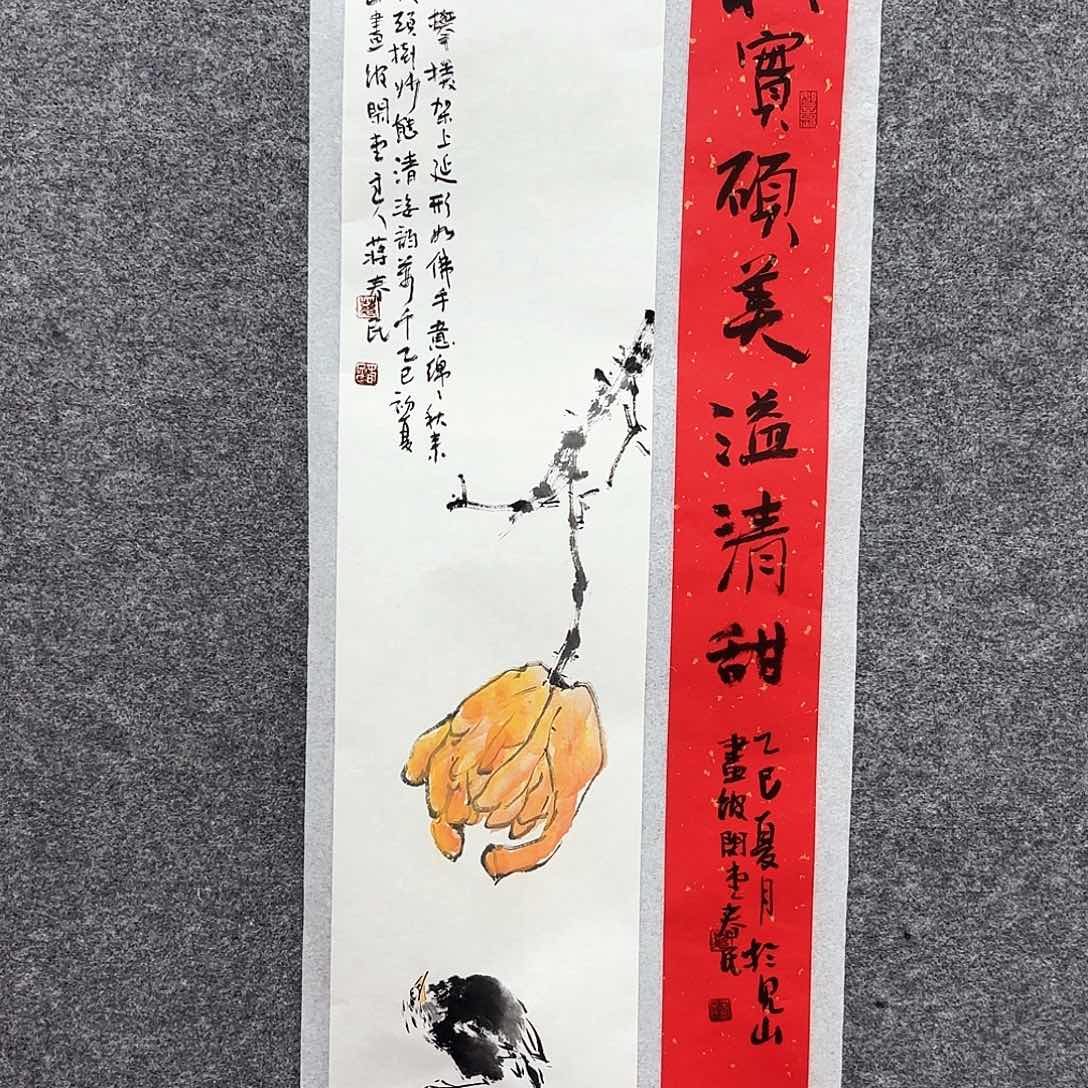 實碩美溢清甜
乙巳夏月於見山
畫緣閑堂春民
攀援架上延形如佛手意綿々秋來
頭樹梢態清姿韻萬千乙巳初夏
畫緣閑堂主人蔣春民